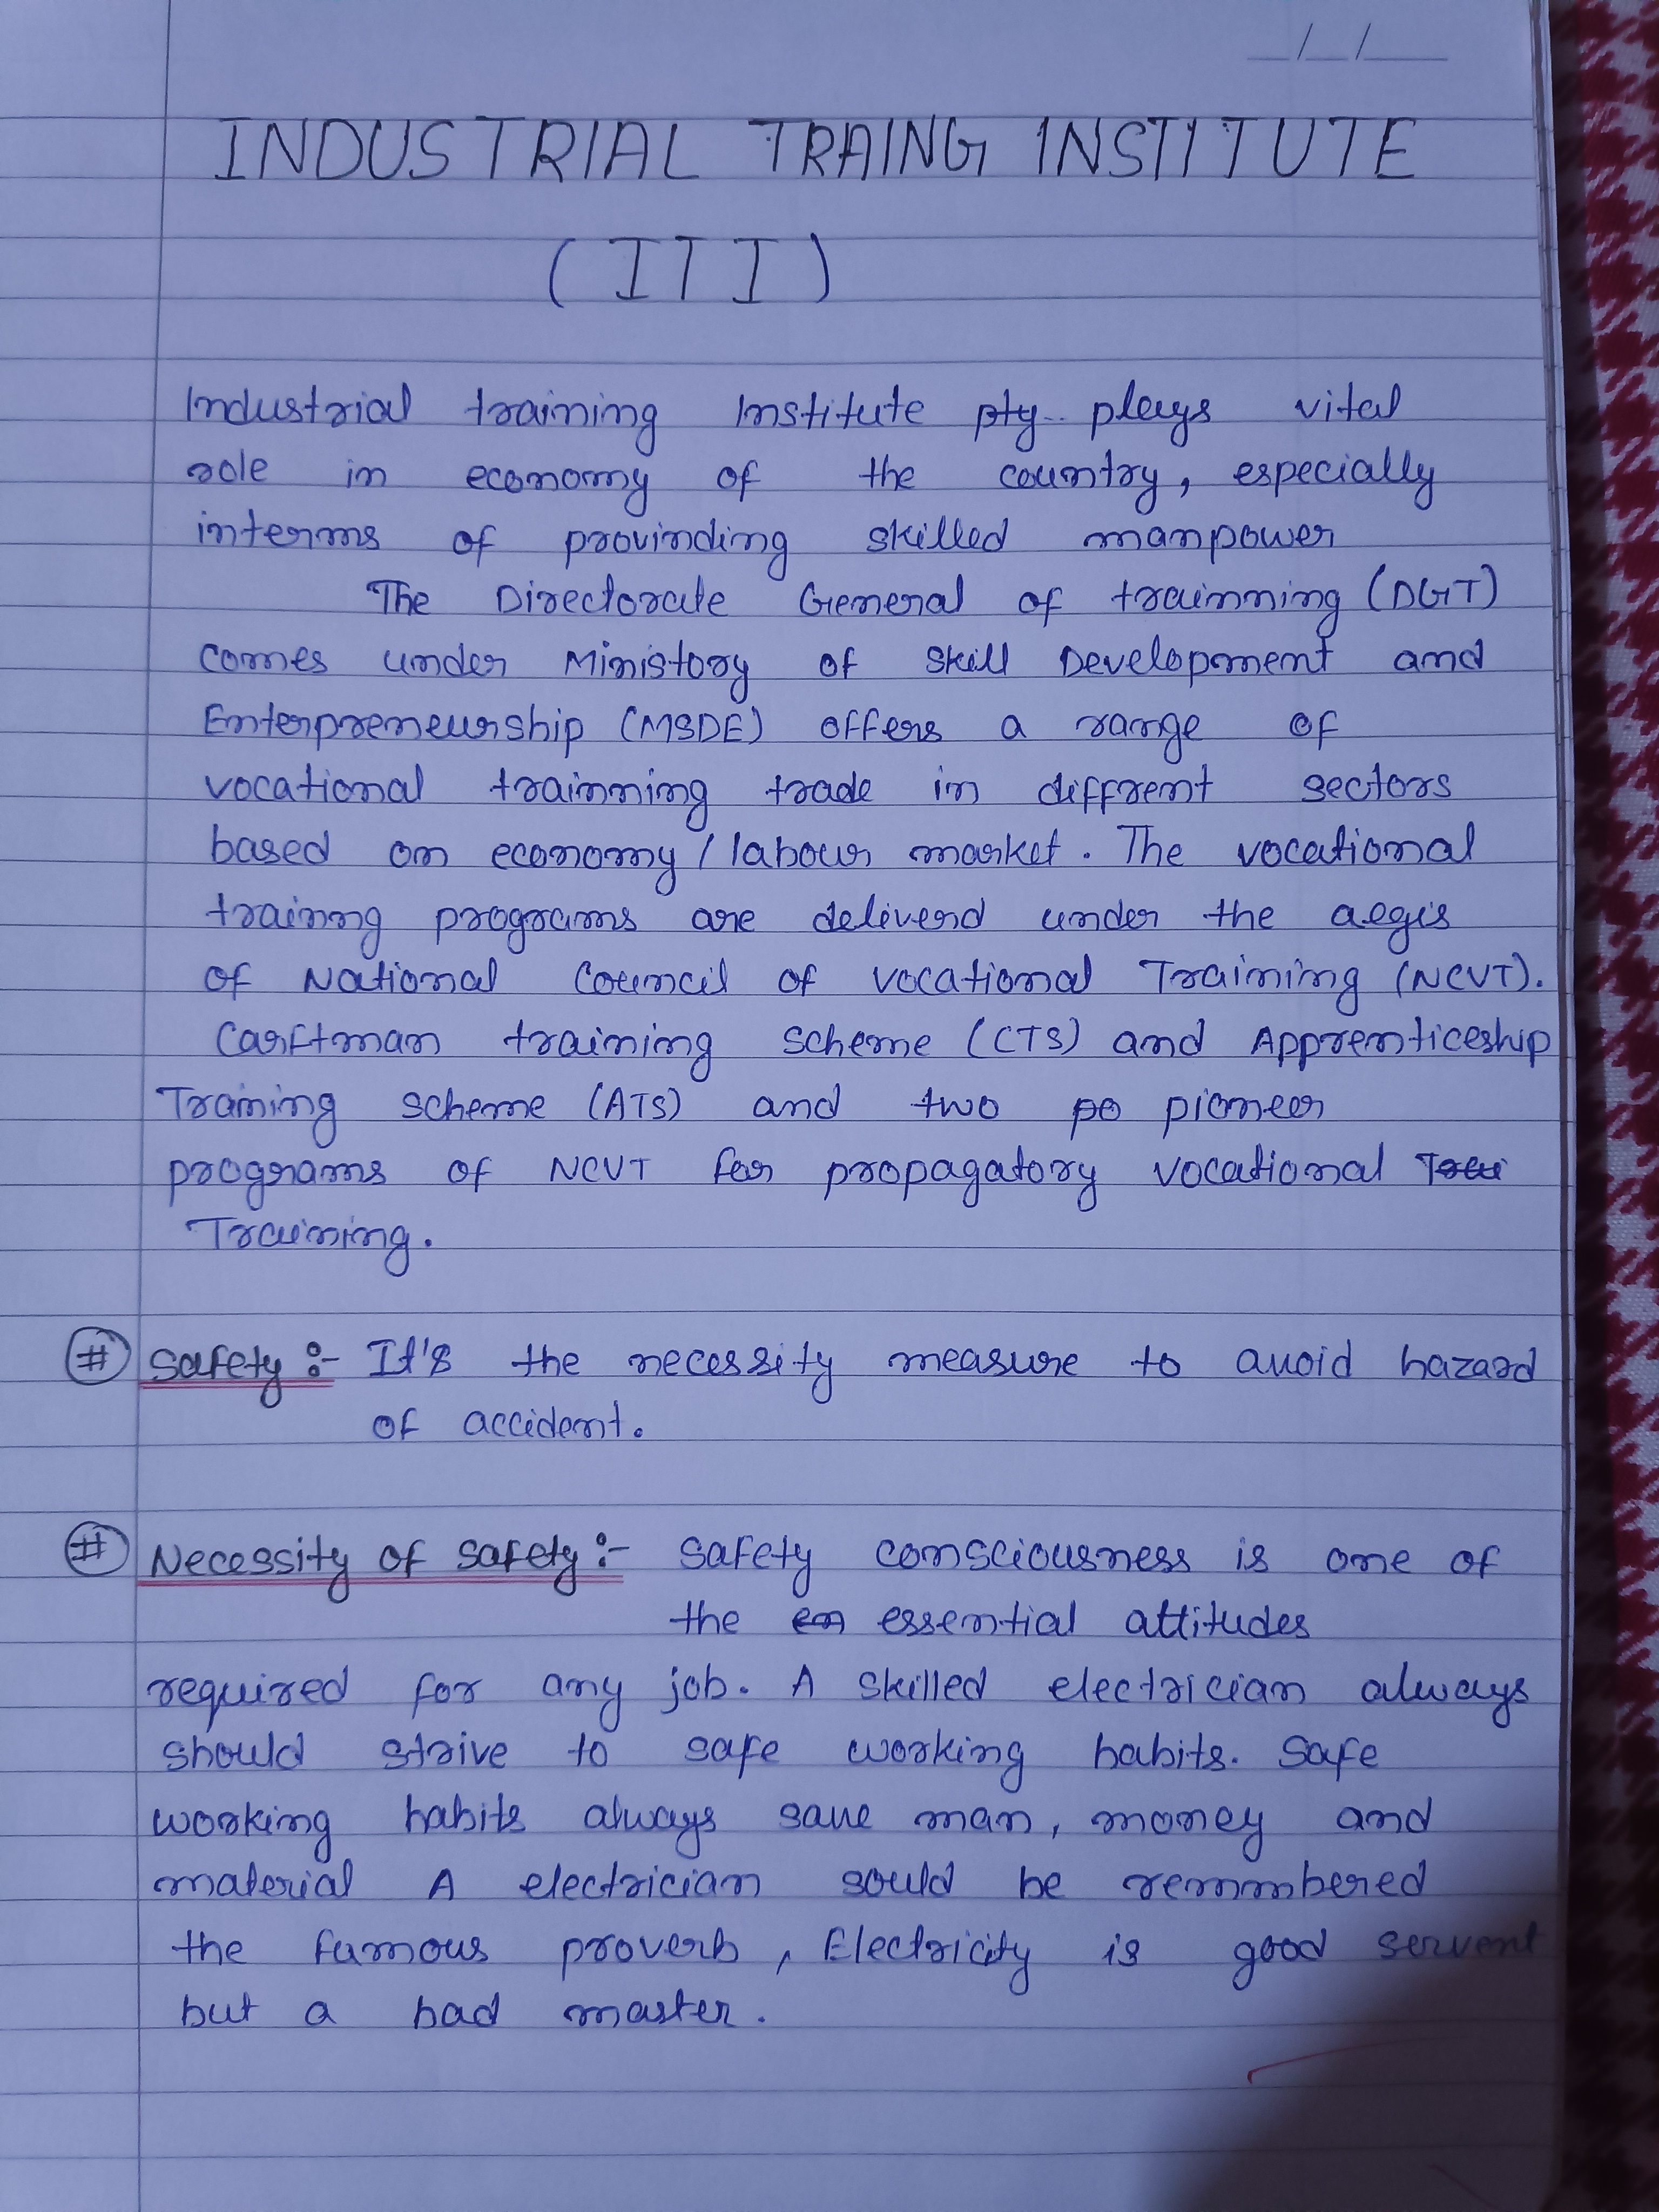 INDUSTRIAL TRAING INSTITUTE
(ITI)
Industrial training Institute pty plays vital
role in economy of the country, especially
interms of provinding skilled manpower
The Directorate General of trainning (DGT)
comes under Ministory of Skill Development and
Enterpreneurship (MSDE) offers a range of
vocational trainning trade in diffrent sectors
based on economy / labour market. The vocational
training programs are deliverd under the aegis
of National Council of vocational Training (NCVT).
Carftman training scheme (CTS) and Apprenticeship
Training scheme (ATS) and two po pioneer
programs of NCVT for propagatory vocational Trai
Training.
# Safety :- It's the necessity measure to avoid hazard
of accident.
# Necessity of safety :- Safety consciousness is one of
the en essential attitudes
required for any job. A skilled electrician always
should strive to safe working habits. Safe
working habits always save man, money and
material A electrician sould be remmbered
the famous proverb, Electricity is good servent
but a bad master.